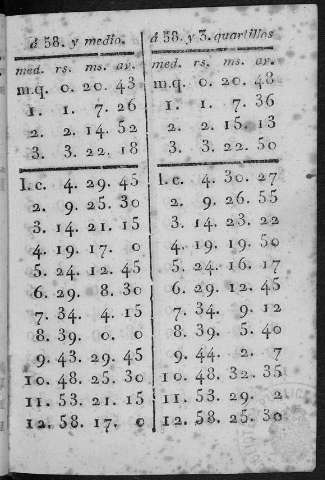 á 58. y medio.
med. rs. ms. av.
m.q. 0. 20. 43
1. 1. 7. 26
2. 2. 14. 52
3. 3. 22. 18
1.c. 4. 29. 45
2. 9. 25. 30
3. 14. 21. 15
4. 19. 17. 0
5. 24. 12. 45
6. 29. 8. 30
7. 34. 4. 15
8. 39. 0. 0
9. 43. 29. 45
10. 48. 25. 30
11. 53. 21. 15
12. 58. 17. 0
á 58. y 3. quartillos
med. rs. ms. av.
m.q. 0. 20. 48
1. 1. 7. 36
2. 2. 15. 13
3. 3. 22. 50
1.c. 4. 30. 27
2. 9. 26. 55
3. 14. 23. 22
4. 19. 19. 50
5. 24. 16. 17
6. 29. 12. 45
7. 34. 9. 12
8. 39. 5. 40
9. 44. 2. 7
10. 48. 32. 35
11. 53. 29. 2
12. 58. 25. 30